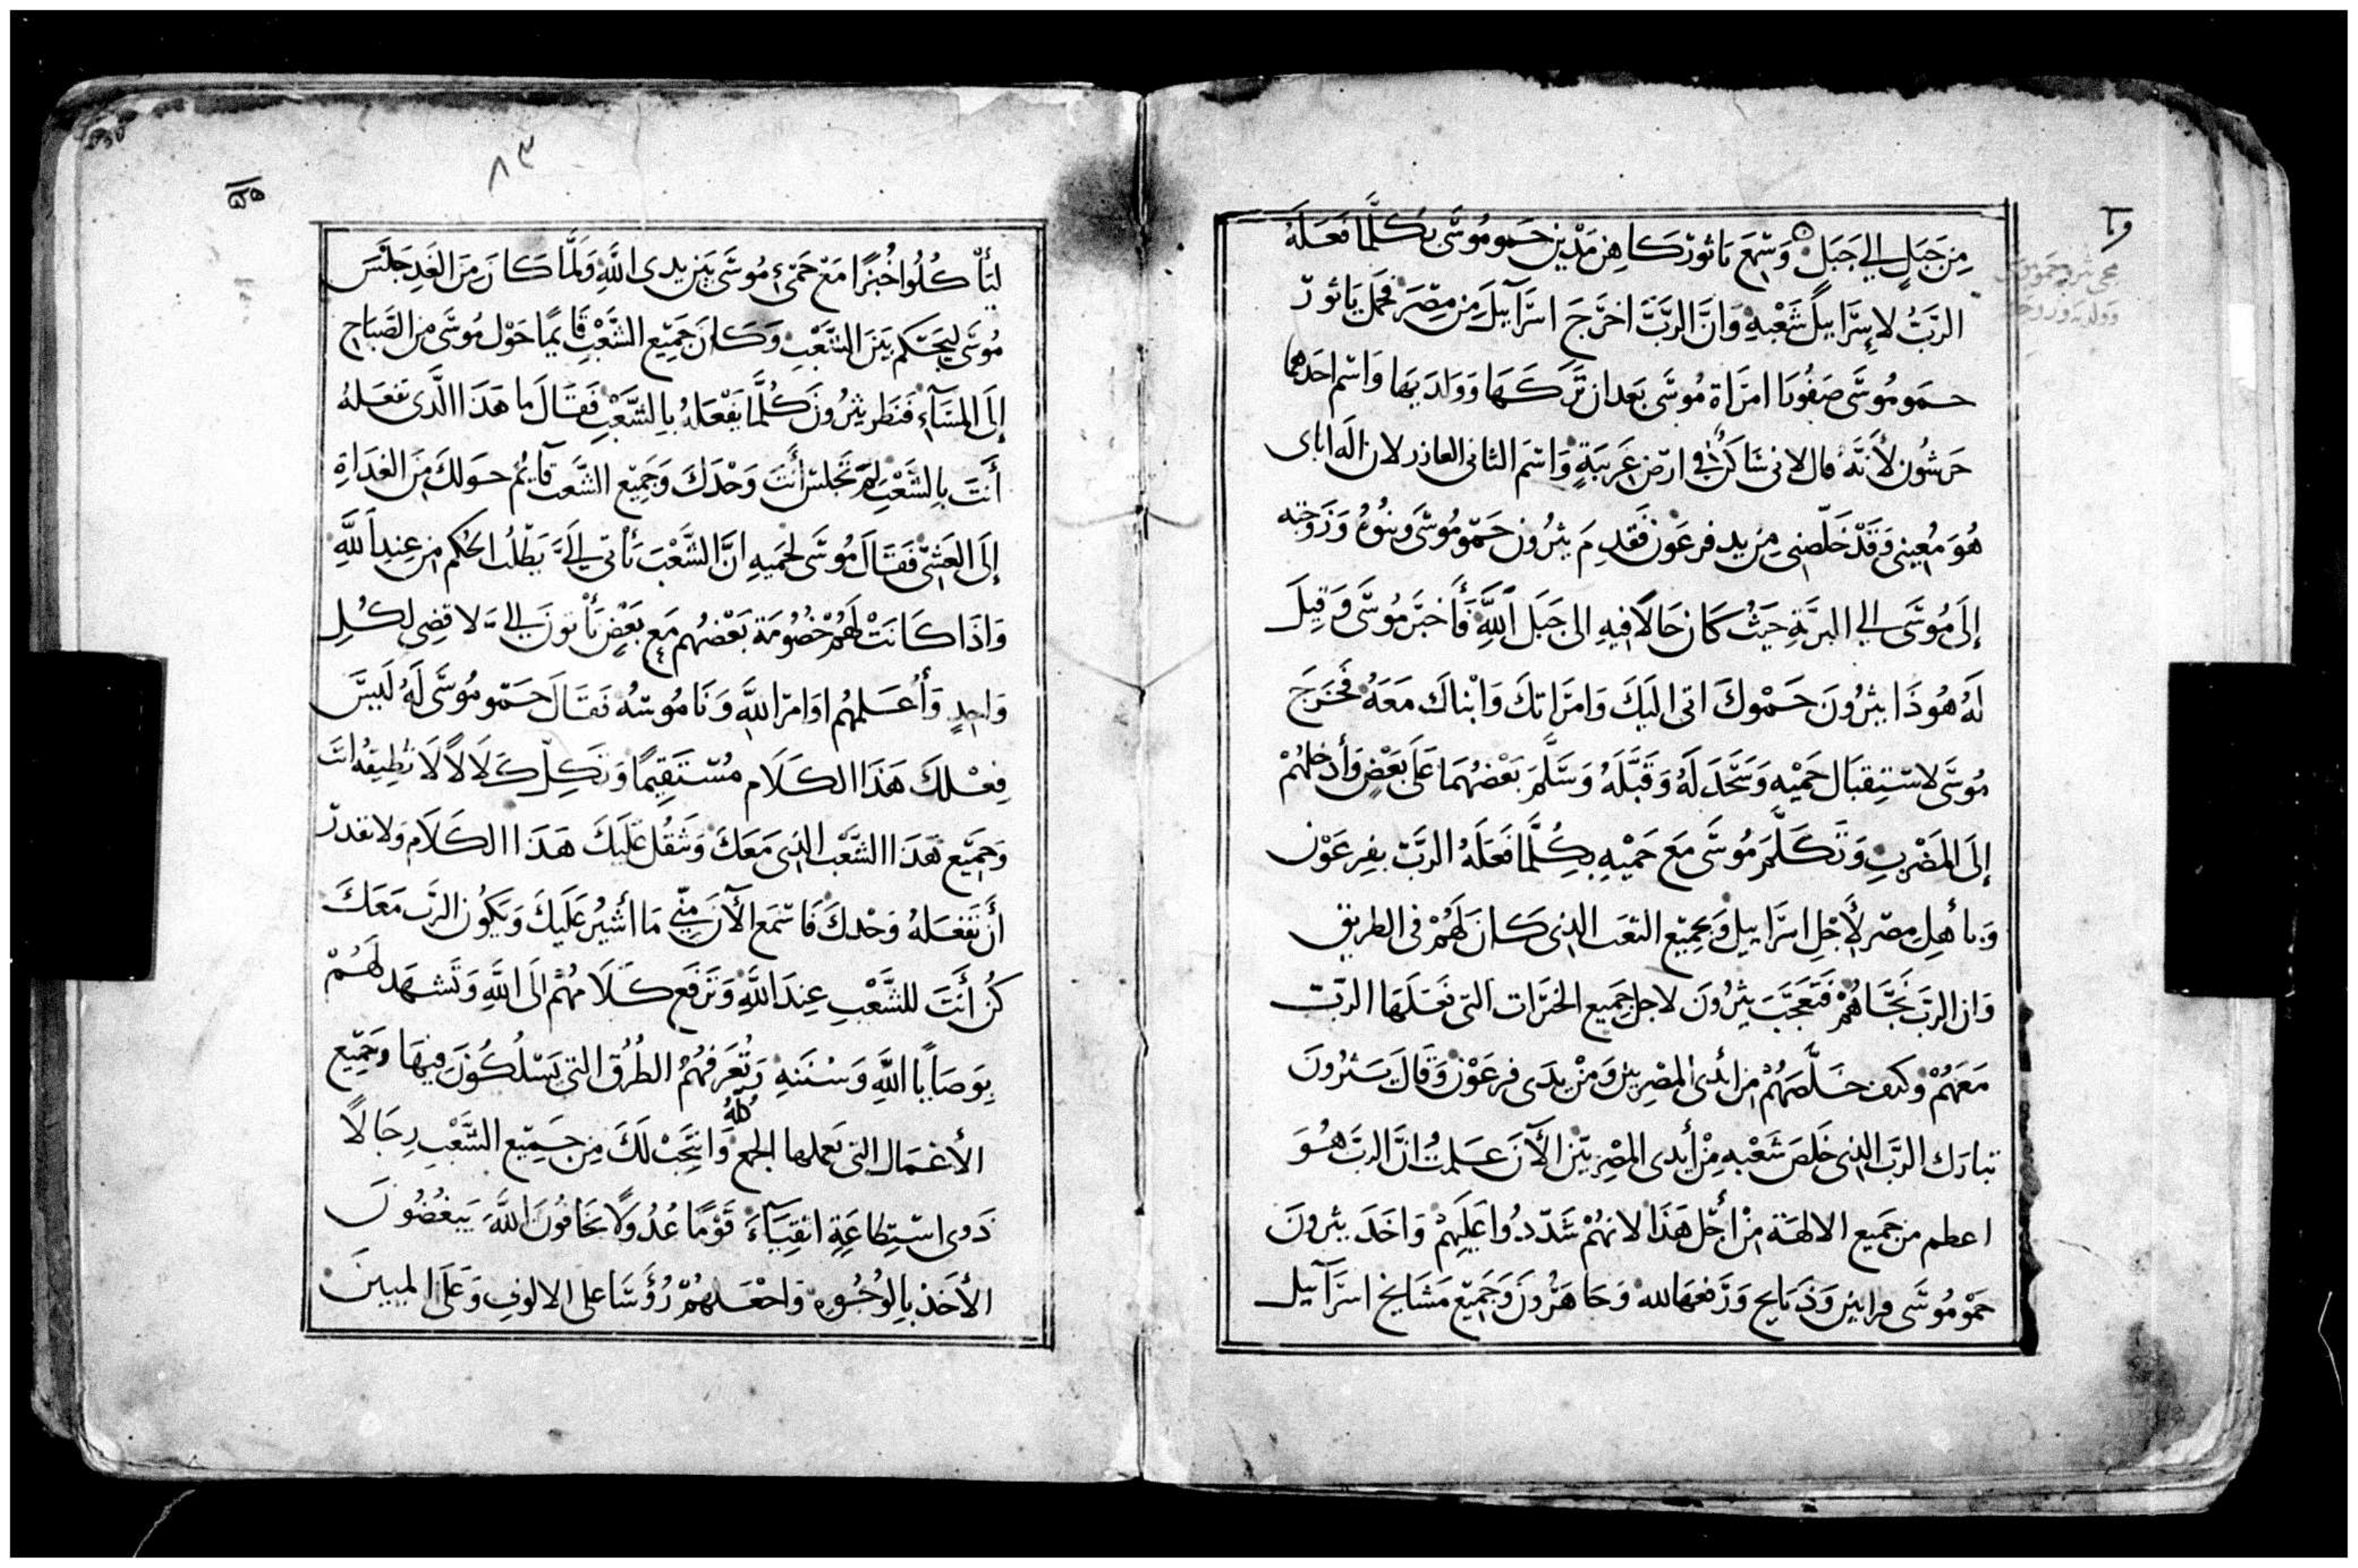 مِن جَبَلٍ الي جَبَلٍ وَسَمِعَ ياثورَ كاهِن مَدْيَن حَمو مُوسَى بكُلَّما فَعَلَهُ
الرَّبُّ لاِسرَاييلَ شَعْبهِ وَانَّ الرَّبَّ اخرَجَ اسرَآييلَ مِن مِصْرَ فحَمَل يَاثورَ
حمو مُوسَى صَفُورَا امرَاة مُوسَى بَعد ان تَرَكَهَا وَوَلدَيهَا وَاسْم احَدهما
حَرشُون لأَنَّهُ قال لانى سَاكنٌ في ارضٍ غَريبَةٍ وَاسْم الثانى العاذر لان الَه اباى
هُوَ مُعِينى وَقَدْ خَلّصَنى مِن يد فرعَون فَقَدِمَ يثرُون حَمّو مُوسَى وبنُوهُ وَزَوجَته
إلَى مُوسَى الي البرِيَّةِ حَيثُ كَانَ حَالاً فيهِ الى جَبَل اللهِ فَأَخبَرَ مُوسَى وَقِيلَ
لَهُ هُوذَا يثرُونَ حَمْوكَ اتى اليكَ وَامرَاتكَ وَابْناكَ مَعَهُ فَخَرَجَ
مُوسَى لاستِقبَال حَمْيهِ وَسَجَدَ لَهُ وَقَبَّلَهُ وَسَلَّمَ بَعْضُهُمَا عَلَى بَعْضٍ وَأدخلهُمْ
إلَى المَضْربِ وَتَكَلَّمَ مُوسَى مَعَ حَمْيهِ بكُلَّما فَعَلَهُ الرَّبّ بفِرعَوْن
وَبأهلِ مِصْر لأَجْلِ اسرَاييل وَبجميع التعَب الذى كَانَ لَهُمْ فى الطريق
وَان الربّ نَجَّاهُمْ فَتَعَجَّبَ يثرُونَ لاجل جَميع الخيرَات التى فعَلَهَا الربّ
مَعَهُمْ وكيف خَلَّصَهُمْ مِن أيْدى المصْرِيين وَمنْ يَدَى فرعَوْن وَقَالَ يثرُونَ
تبارَك الربّ الذى خَلصَ شَعْبهِ مِنْ أيدى المصْرِيّينَ الآنَ عَلمتُ انَّ الربّ هُوَ
اعظم من جَميع الالهَة مِنْ أَجْل هَذَا لانهُمْ شَدّدُوا عَليهمْ وَاخَذَ يثرونَ
حَمْو مُوسَى قرابين وَذَبَايح وَرَفعَهَا لله وَجَا هَرُونَ وَجَميع مَشَايخ اسرَآييل
٨٣
ليَأْكُلُوا خُبْزًا مَعَ حَمْئِ مُوسَى بَين يدى اللهِ وَلَمَّا كَانَ مِنَ الغَدِ جَلَسَ
مُوسَى ليَحْكم بَينَ الشَّعْبِ وَكَانَ جَميع الشَّعْبِ قَايمًا حَوْل مُوسَى مِن الصَّبَاحِ
إلَى المسَآءِ فنَظر يثرُونَ كُلَّما يَفْعَلهُ بالشَّعْبِ فَقَالَ ما هَذَا الَّذى تفعَلهُ
أَنتَ بالشَعْبِ لِمَ تَجْلسَ أنتَ وَحْدكَ وَجَميع الشَّعبَ قآئمٌ حَولكَ مِنَ الغدَاةِ
إلَى العَشىّ فَقَالَ مُوسَى لحَميهِ انَّ الشَّعْبَ يَأتى اليَّ يَطْلُبُ الحُكم مِن عِندِ اللهِ
وَاذَا كَانَتْ لَهُمْ خصُومَة بَعْضهُم مَع بَعْضٍ يَأتونَ اليَّ لاقضى لكُلِ
وَاحِدٍ وَأُعَلمهُم اوَامرَ اللهِ وَنَامُوسَهُ فقَالَ حَمّو مُوسَى لَهُ لَيسَ
فِعْلكَ هَذَا الكَلَام مُسْتَقِيمًا وَتَكِلّ كَلَالاً لَا تُطِيقهُ انتَ
وَجَميع هَذَا الشَّعْب الذى مَعَكَ وَيَثقُل عَليكَ هَذَا الكَلَام وَلا تقدر
أَن تَفعَلهُ وَحْدكَ فَاسْمَع الآنَ مِنّي مَا أُشيرُ عَلَيكَ وَيَكُون الرَّبّ مَعَكَ
كُن أَنتَ للشَّعْبِ عِندَ اللهِ وَتَرفَع كَلَامهُم الَى اللهِ وَتَشْهَد لَهُمْ
بوَصَايَا اللهِ وَسُنَنهِ وَتُعَرفهُمُ الطُرُق التى يَسْلُكُونَ فِيهَا وَجَميع
الأَعْمَال التى يَعملها الجمع كلّهُ وَانتَخِبْ لَكَ مِن جَميع الشَّعْب رِجَالاً
ذَوى اسْتِطَاعَةٍ اتقِيَآءَ قَوْمًا عُدُولاً يخَافُونَ اللهَ يَبغُضُونَ
الأَخَذ بالوُجُوه وَاجْعَلهُمْ رُؤَسَا على الالوف وَعَلَى الميينَ